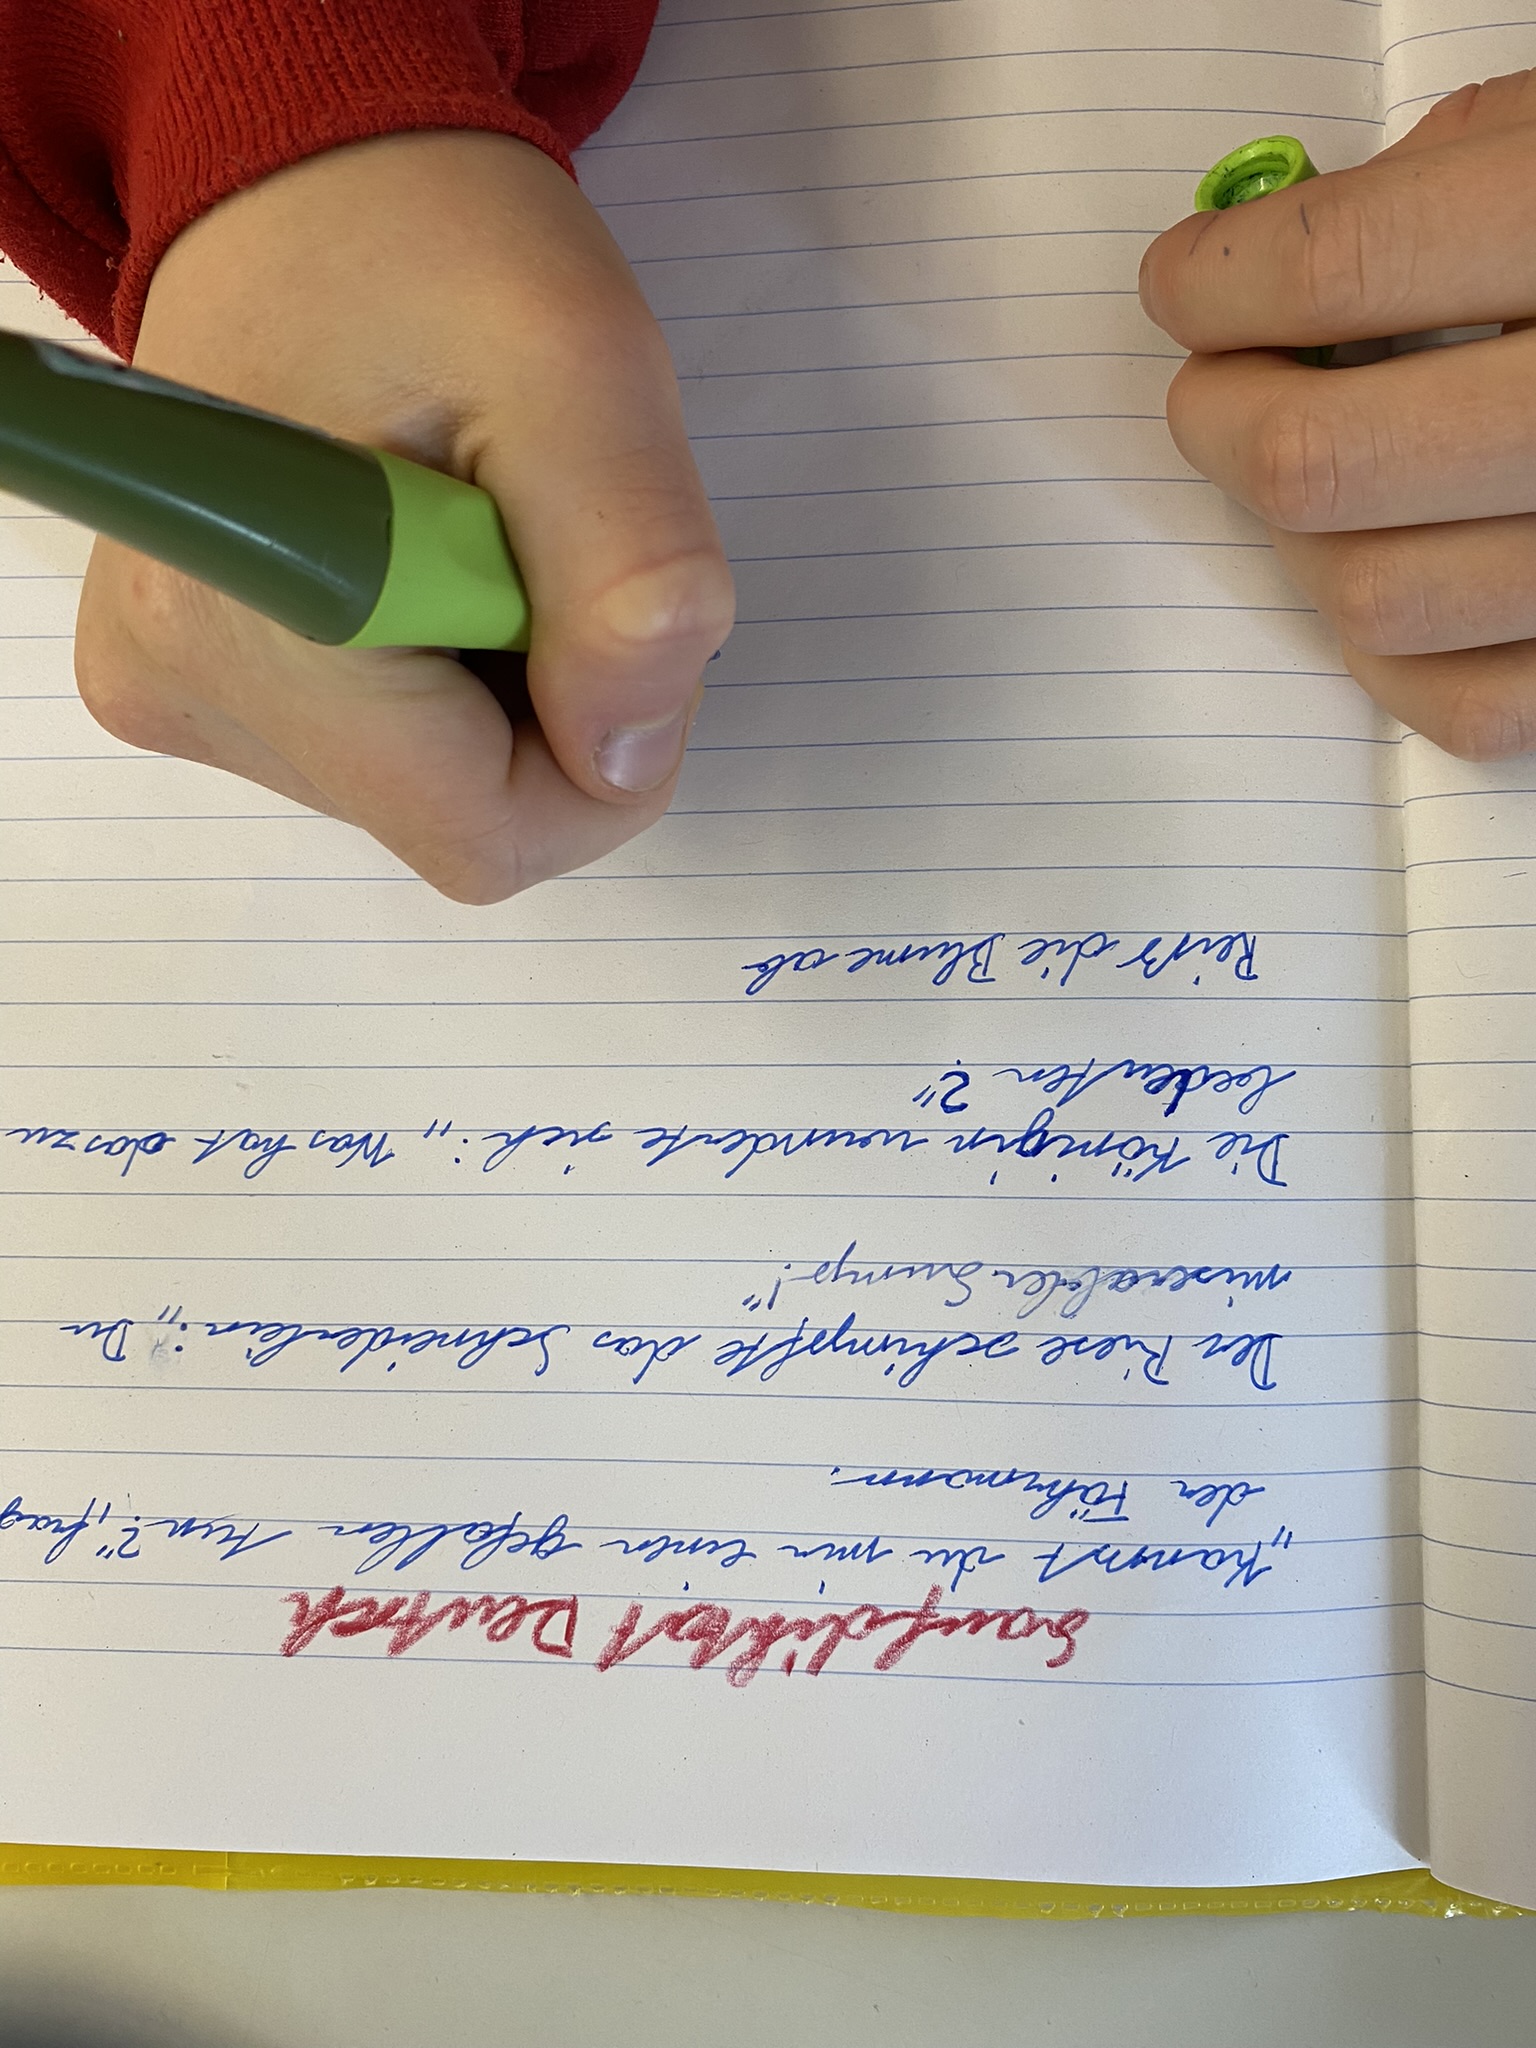 Laufdiktat Deutsch
„Kannst du mir einen gefallen tun?", frag
der Fährmann.
Der Riese schimpfte das Schneiderlein: „Du
miserabler Lump!"
Die Königin wunderte sich: „Was hat das zu
bedeuten?"
Reiß die Blume ab